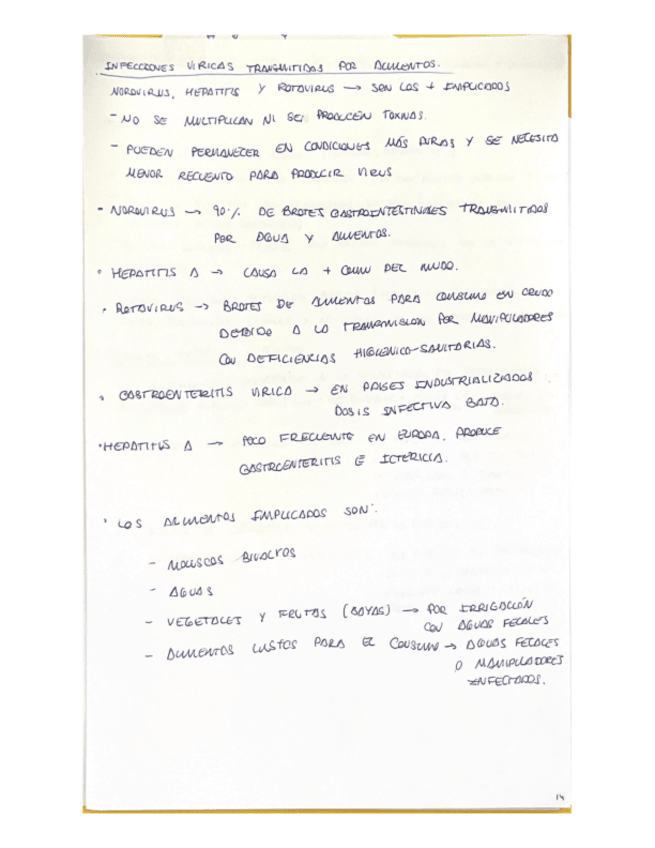 INFECCIONES VIRICAS TRANSMITIDAS POR ALIMENTOS.
NOROVIRUS, HEPATITIS Y ROTOVIRUS → SON LOS + IMPLICADOS
- NO SE MULTIPLICAN NI SE PRODUCEN TOXINAS.
- PUEDEN PERMANECER EN CONDICIONES MÁS DURAS Y SE NECESITA
MENOR RECUENTO PARA PRODUCIR VIRUS
- NOROVIRUS → 90% DE BROTES GASTROINTESTINALES TRANSMITIDOS
POR AGUA Y ALIMENTOS.
• HEPATITIS A → CAUSA LA + COMUN DEL MUNDO.
• ROTOVIRUS → BROTES DE ALIMENTOS PARA CONSUMO EN CRUDO
DEBIDO A LA TRANSMISION POR MANIPULADORES
CON DEFICIENCIAS HIGIENICO-SANITARIAS.
• GASTROENTERITIS VIRICA → EN PAISES INDUSTRIALIZADOS
DOSIS INFECTIVA BAJA.
• HEPATITIS A → POCO FRECUENTE EN EUROPA. PRODUCE
GASTROENTERITIS E ICTERICIA.
• LOS ALIMENTOS IMPLICADOS SON:
- MOLUSCOS BIVALVOS
- AGUAS
- VEGETALES Y FRUTAS (BAYAS) → POR IRRIGACIÓN
CON AGUAS FECALES
- ALIMENTOS LISTOS PARA EL CONSUMO → AGUAS FECALES
O MANIPULADORES
INFECTADOS.
14